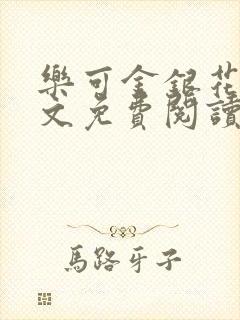 樂可金銀花
文免費閱讀
馬路牙子